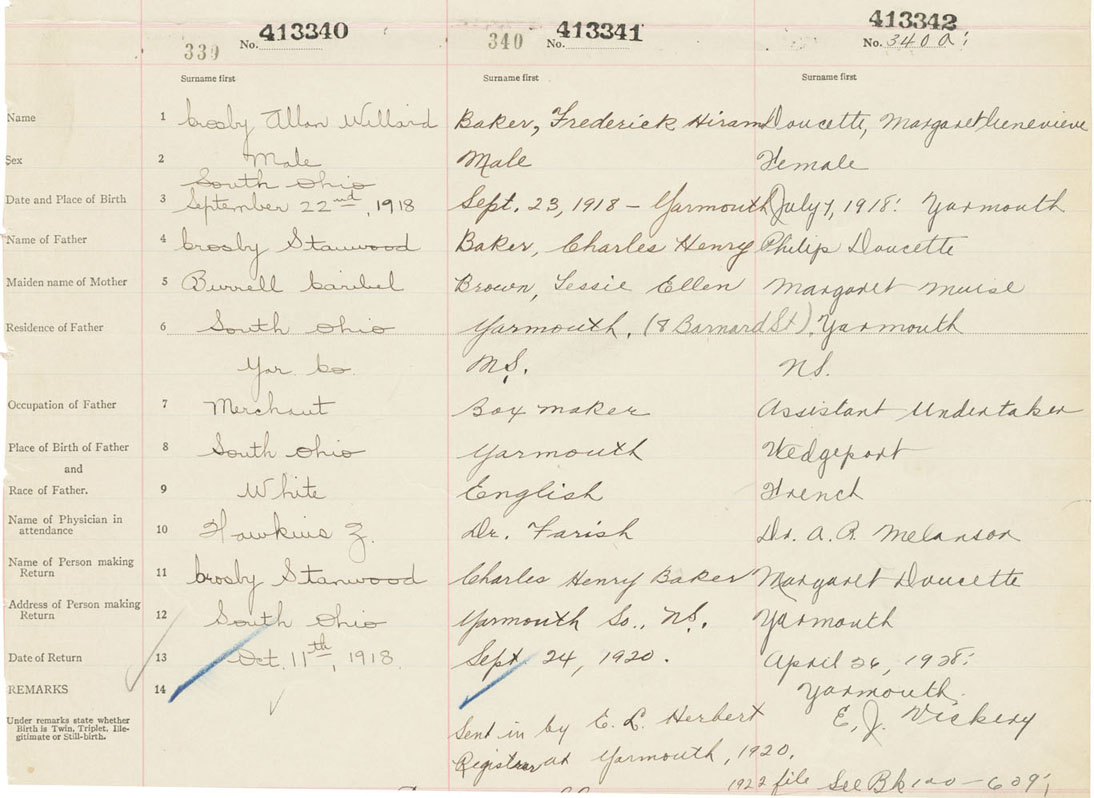 413340 413341 413342
339 No. 340 No. No. 340a;
Surname first Surname first Surname first
Name 1 Crosby Allan Willard Baker, Frederick Hiram Doucette, Margaret Genevieve
Sex 2 Male Male Female
South Ohio
Date and Place of Birth 3 September 22nd, 1918 Sept. 23, 1918 - Yarmouth July 7, 1918: Yarmouth
Name of Father 4 Crosby Stanwood Baker, Charles Henry Philip Doucette
Maiden name of Mother 5 Burrell Caribel Brown, Jessie Ellen Margaret Muise
Residence of Father 6 South Ohio Yarmouth, (8 Barnard St), Yarmouth
Yar. Co. NS. NS.
Occupation of Father 7 Merchant Box maker Assistant Undertaker
Place of Birth of Father 8 South Ohio Yarmouth Wedgeport
and
Race of Father. 9 White English French
Name of Physician in
attendance 10 Hawkins Z. Dr. Farish Dr. A. R. Melanson
Name of Person making
Return 11 Crosby Stanwood Charles Henry Baker Margaret Doucette
Address of Person making
Return 12 South Ohio Yarmouth So., NS. Yarmouth
Date of Return 13 Oct. 11th, 1918. Sept 24, 1920. April 26, 1928:
REMARKS 14 Yarmouth.
Under remarks state whether
Birth is Twin, Triplet, Ille-
gitimate or Still-birth.
Sent in by E. L. Herbert E. J. Vickery
Registrar at Yarmouth, 1920.
1922 file See Bk 120-609;